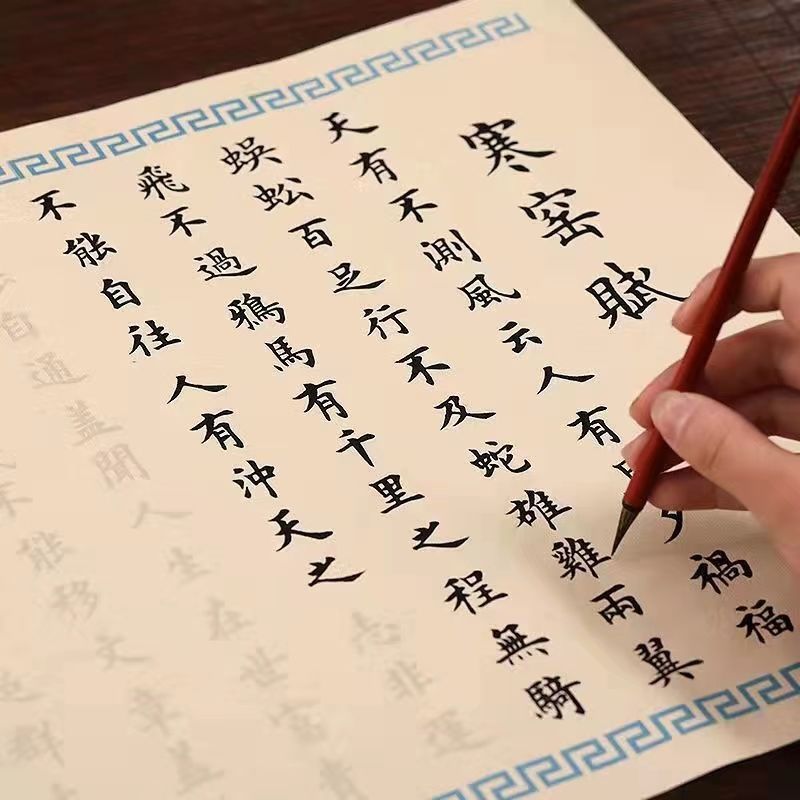 寒窑賦
天有不測風云人有旦夕禍福
蜈蚣百足行不及蛇雄雞兩翼
飛不過鴉馬有千里之程無騎
不能自往人有沖天之志非運
自通盖聞人生在世富貴
不能移文章盖